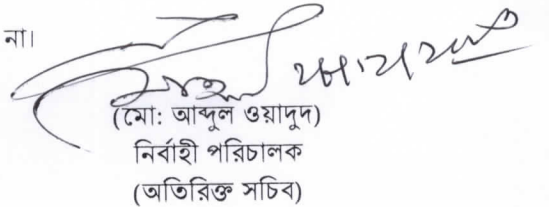 না।
(মো: আব্দুল ওয়াদুদ)
নির্বাহী পরিচালক
(অতিরিক্ত সচিব)